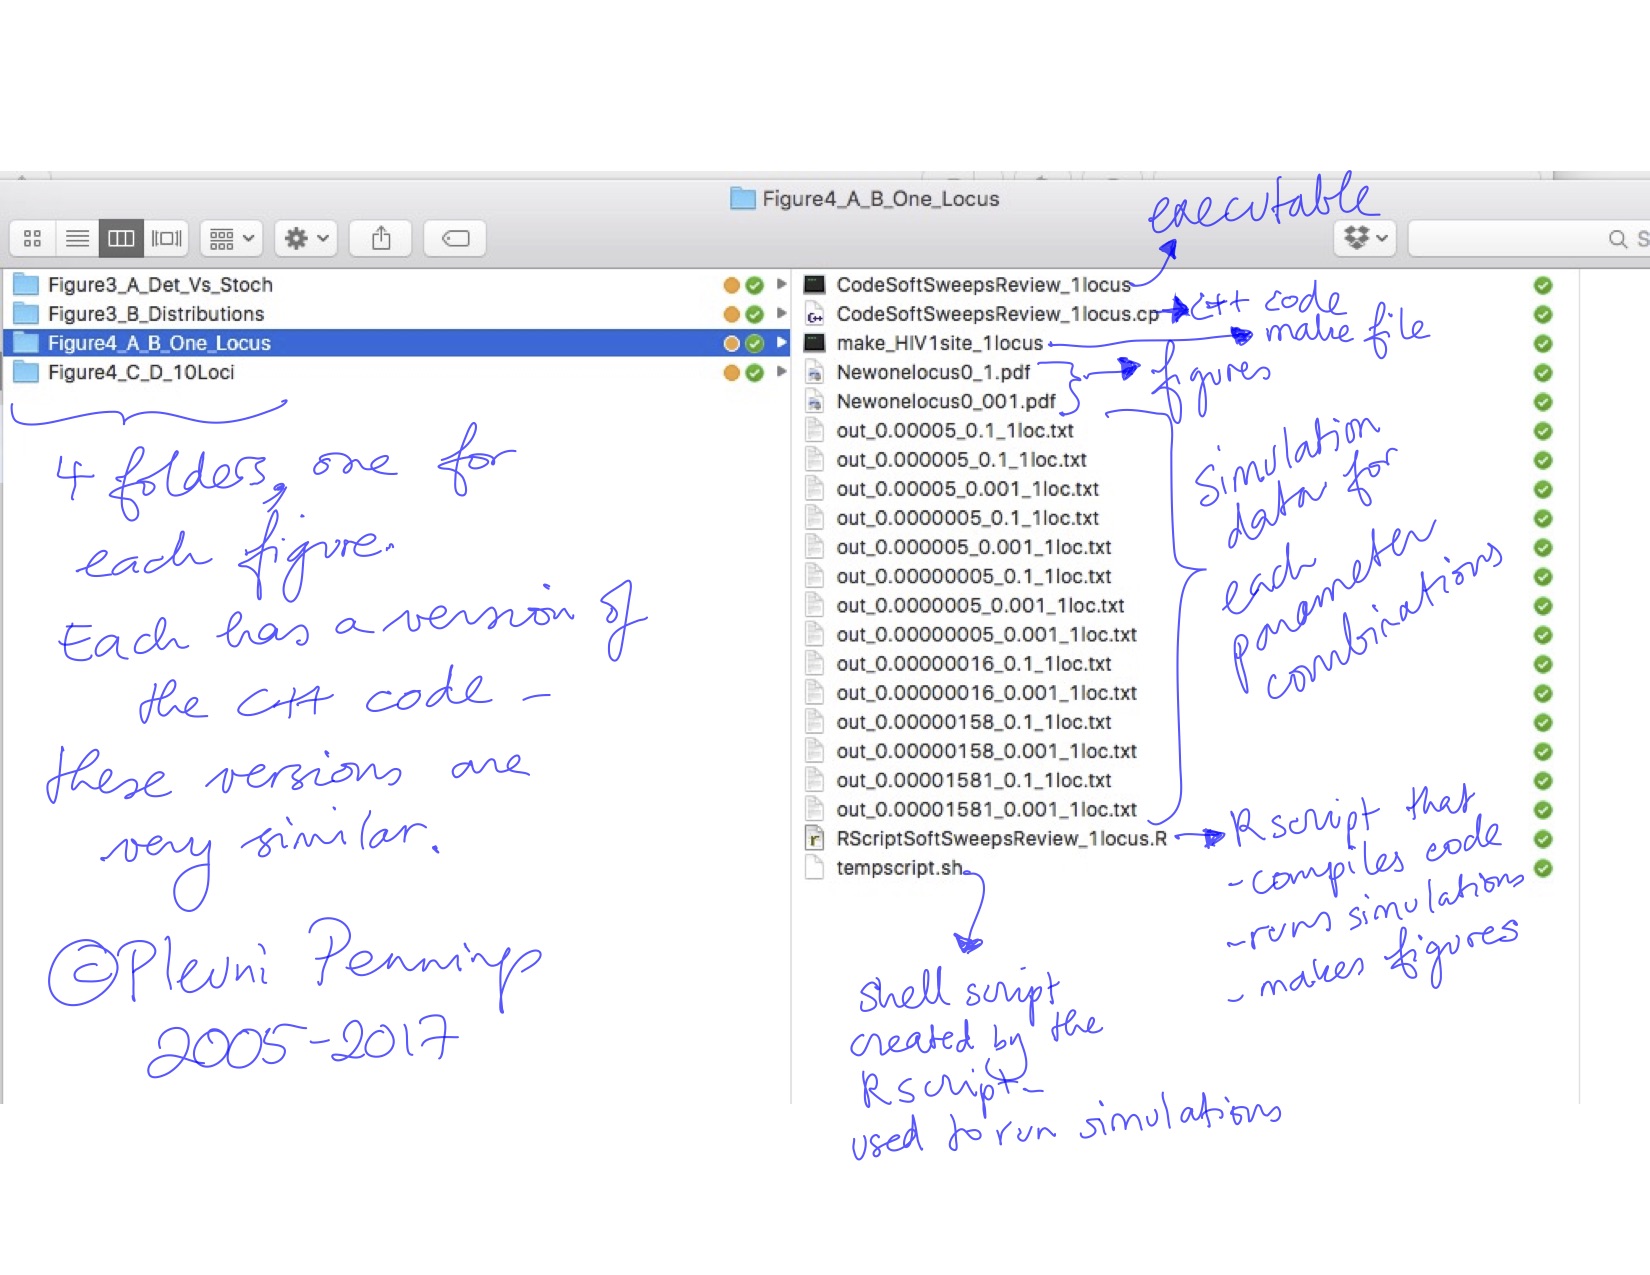 Figure4_A_B_One_Locus
executable
S
Figure3_A_Det_Vs_Stoch
Figure3_B_Distributions
Figure4_A_B_One_Locus
Figure4_C_D_10Loci
4 folders, one for
each figure.
Each has a version of
the C++ code –
these versions are
very similar.
©Pleuni Pennings
2005-2017
CodeSoftSweepsReview_1locus
CodeSoftSweepsReview_1locus.cp
C++ code
make_HIV1site_1locus
make file
Newonelocus0_1.pdf
Newonelocus0_001.pdf
figures
out_0.00005_0.1_1loc.txt
out_0.000005_0.1_1loc.txt
out_0.00005_0.001_1loc.txt
out_0.0000005_0.1_1loc.txt
out_0.000005_0.001_1loc.txt
out_0.00000005_0.1_1loc.txt
out_0.0000005_0.001_1loc.txt
out_0.00000005_0.001_1loc.txt
out_0.00000016_0.1_1loc.txt
out_0.00000016_0.001_1loc.txt
out_0.00000158_0.1_1loc.txt
out_0.00000158_0.001_1loc.txt
out_0.00001581_0.1_1loc.txt
out_0.00001581_0.001_1loc.txt
simulation
data for
each
parameter
combinations
RScriptSoftSweepsReview_1locus.R
Rscript that
- compiles code
- runs simulations
- makes figures
tempscript.sh
shell script
created by the
Rscript –
used to run simulations